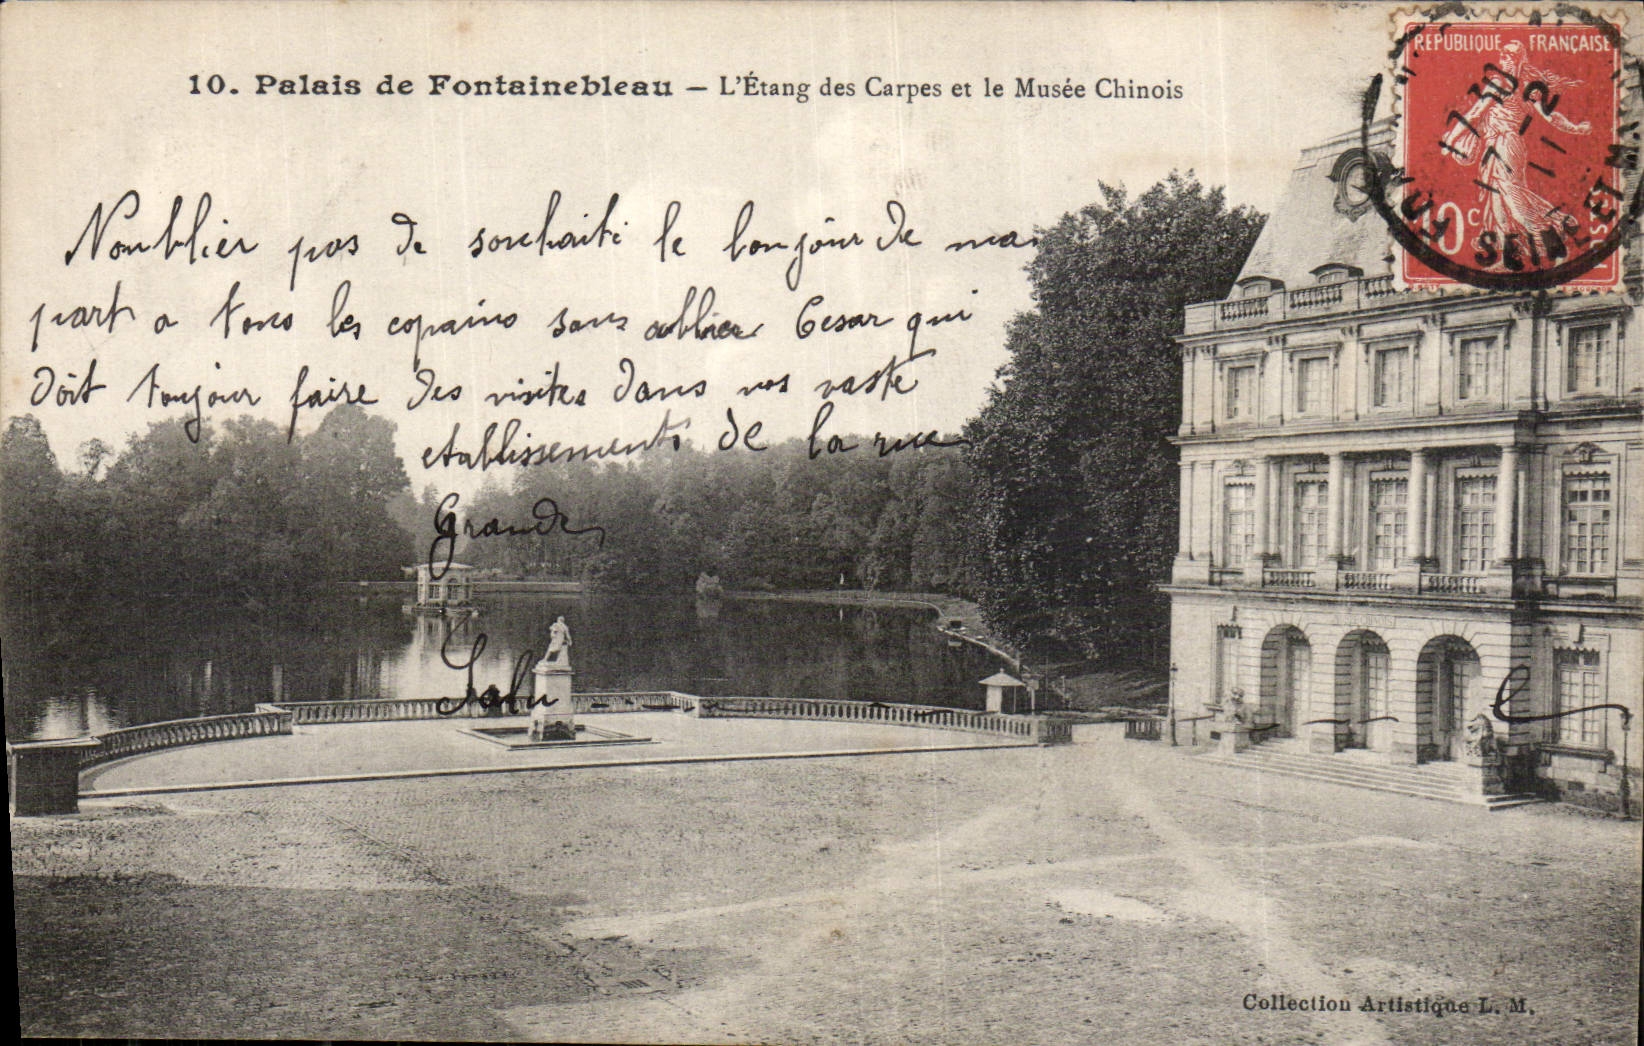 10. Palais de Fontainebleau – L'Étang des Carpes et le Musée Chinois
REPUBLIQUE FRANÇAISE
17 30
17 - 2
11
10 c
SEINE ET M
Noublier pas de souhaiti le bonjour de ma
part a tous les copains sans oublier Cesar qui
doit toujour faire des visites dans vos vaste
etablissements de la rue
Grande
Salu
Collection Artistique L. M.